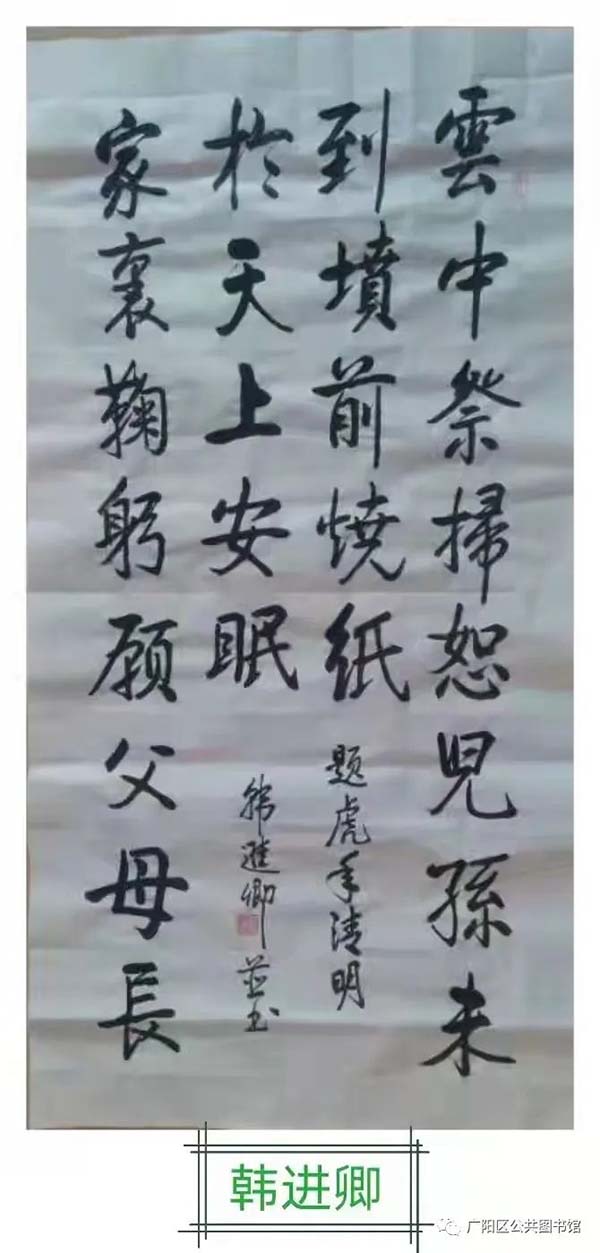 雲中祭掃恕兒孫未
到墳前燒紙
題虎年清明
家裏鞠躬願父母長
於天上安眠
韩進卿並书
韩进卿
广阳区公共图书馆